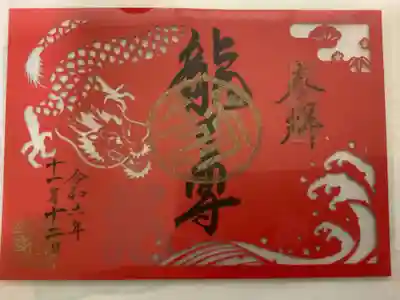 奉拝
龍王尊
令和六年
十一月十二日